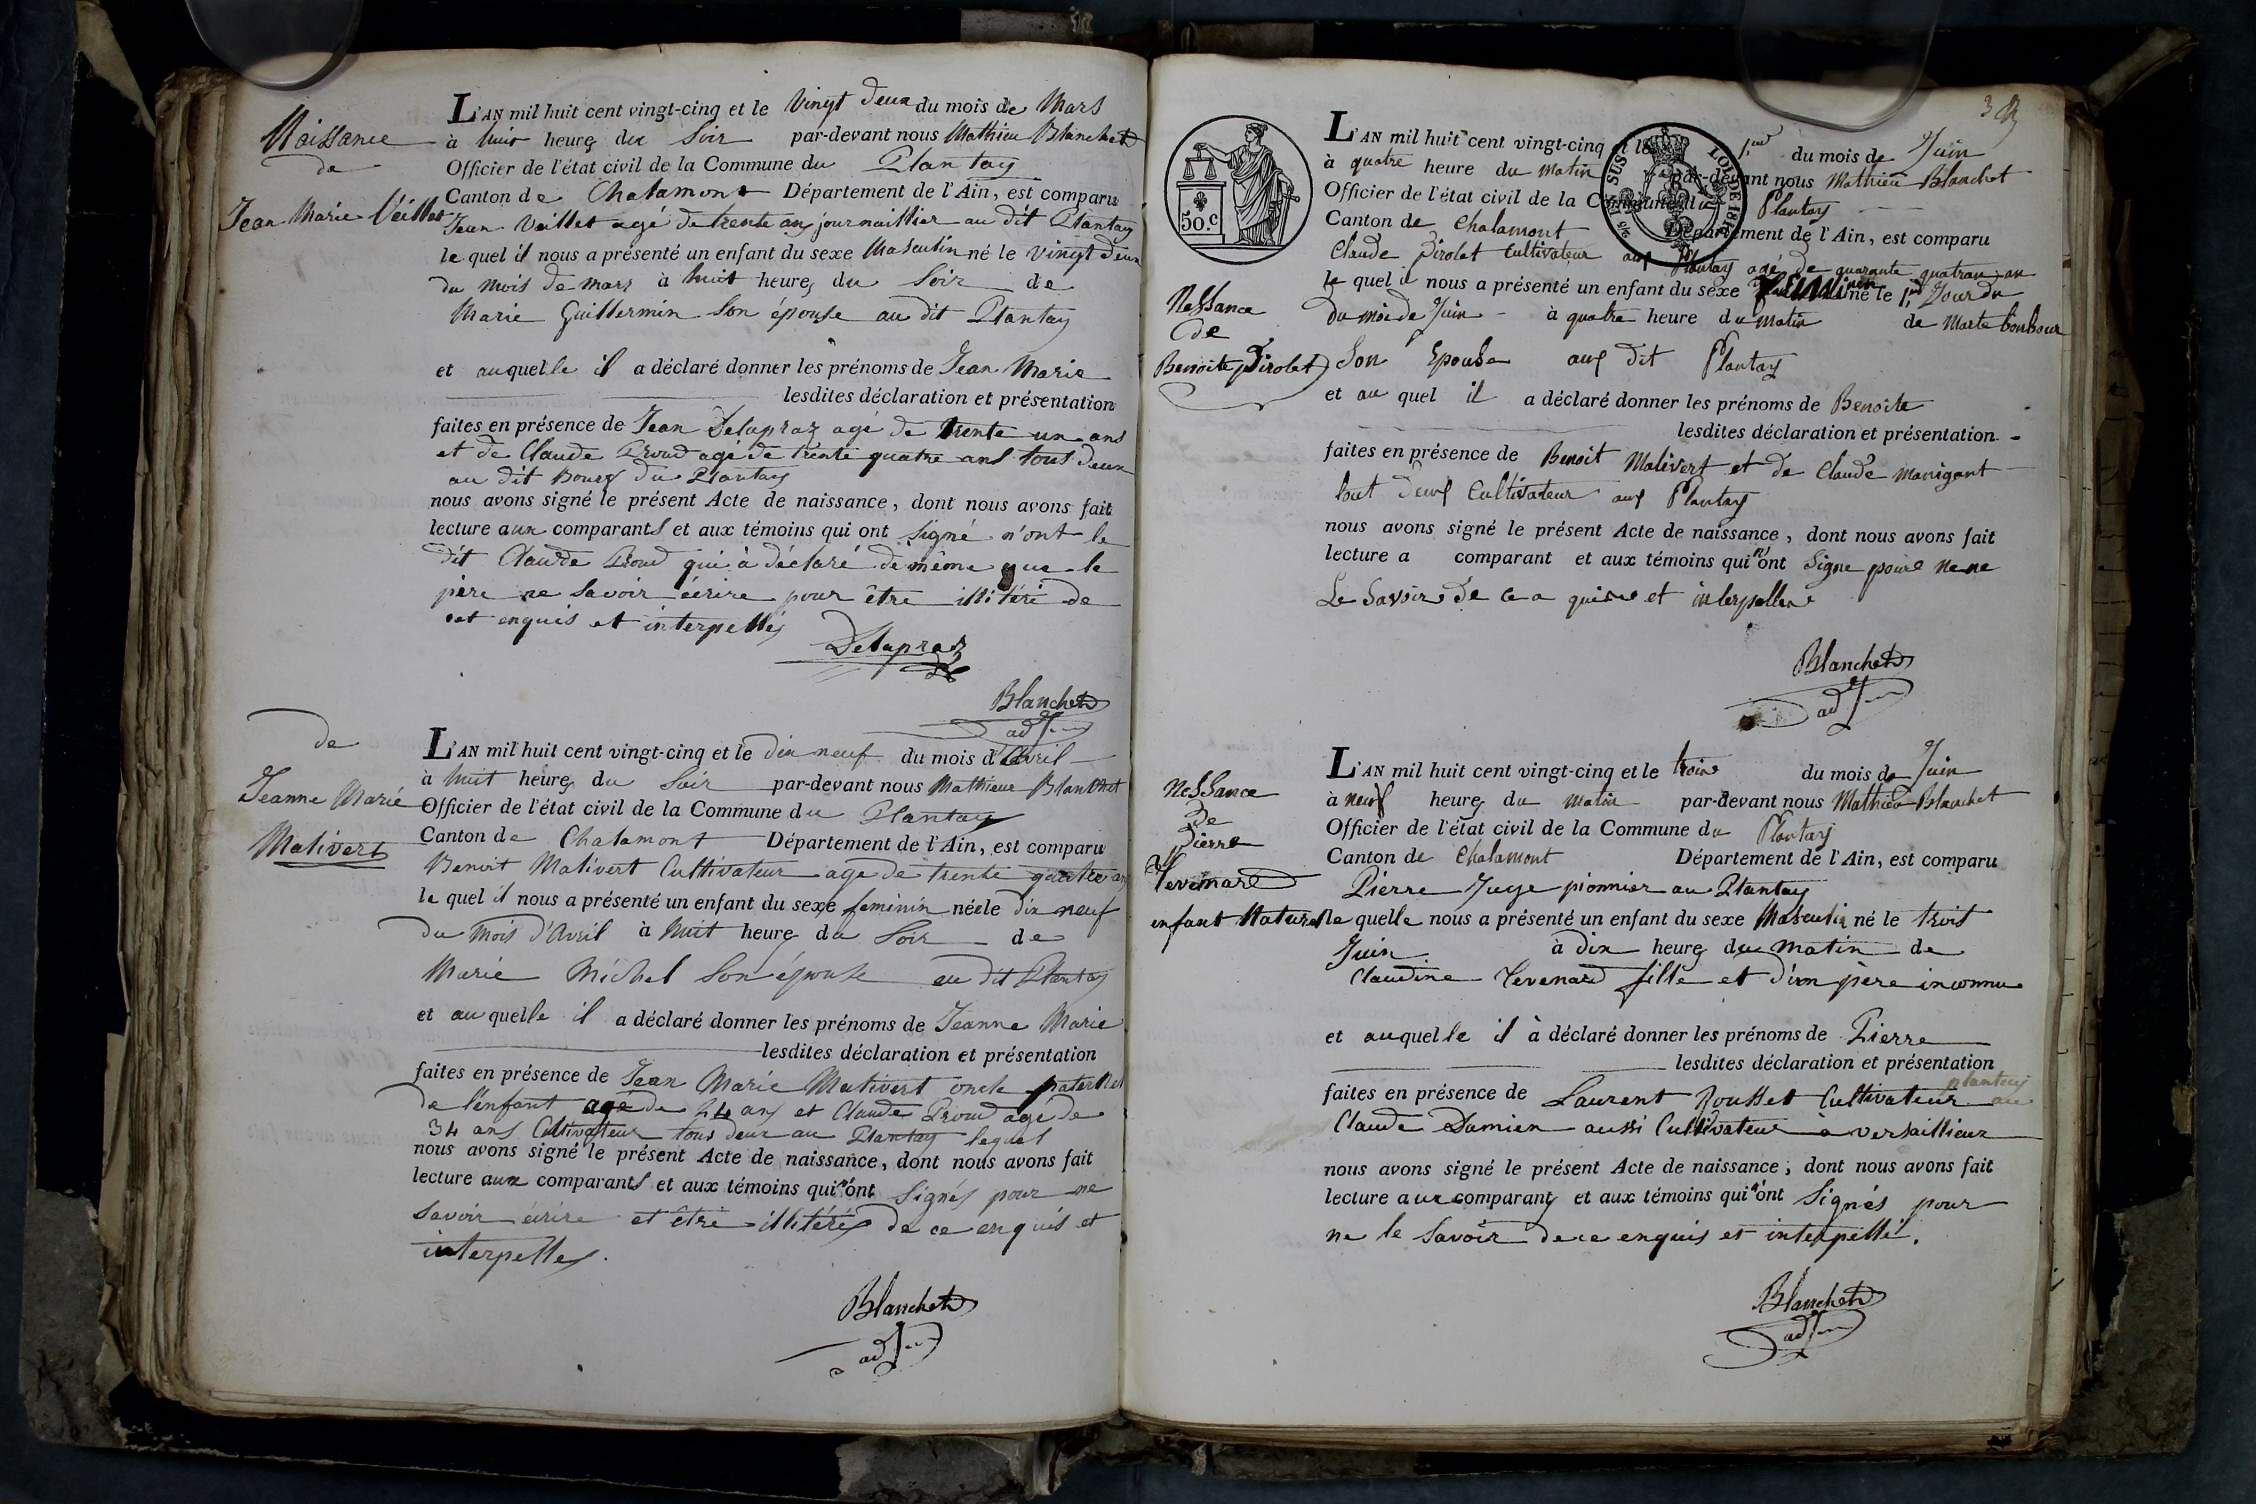 Naissance
de
Jean Marie Veillet
L'AN mil huit cent vingt-cinq et le Vingt deux du mois de Mars
à huit heures du Soir par-devant nous Mathieu Blanchet
Officier de l'état civil de la Commune du Plantay
Canton de Chalamont Département de l'Ain, est comparu
Jean Veillet agé de trente ans journaillier au dit Plantay
le quel il nous a présenté un enfant du sexe Masculin né le vingt deux
du mois de mars à huit heures du Soir de
Marie Guillermin Son épouse au dit Plantay
et auquelle il a déclaré donner les prénoms de Jean Marie
lesdites déclaration et présentation
faites en présence de Jean Delapraz agé de trente un ans
et de Claude Proud agé de trente quatre ans tous deux
au dit Bourg du Plantay
nous avons signé le présent Acte de naissance, dont nous avons fait
lecture aux comparants et aux témoins qui ont signé n'ont le
dit Claude Proud qui à déclaré de même que le
père ne Savoir écrire pour être illitéré de
cet enquis et interpellés
Delapraz
Blanchet
adj
de
Jeanne Marie
Mativert
L'AN mil huit cent vingt-cinq et le dix neuf du mois d'Avril
à huit heures du Soir par-devant nous Mathieur Blanchet
Officier de l'état civil de la Commune du Plantay
Canton de Chalamont Département de l'Ain, est comparu
Benoit Mativert Cultivateur age de trente quatre ans
le quel il nous a présenté un enfant du sexe feminin née le dix neuf
du mois d'Avril à huit heures du Soir de
Marie Michel Son épouse au dit Plantay
et au quelle il a déclaré donner les prénoms de Jeanne Marie
lesdites déclaration et présentation
faites en présence de Jean Marie Mativert oncle paternel
de l'enfant agé de 24 ans et Claude Proud agé de
34 ans Cultivateur tous deux au Plantay lequel
nous avons signé le présent Acte de naissance, dont nous avons fait
lecture aux comparants et aux témoins qui n'ont Signés pour ne
Savoir écrire et être illitérés de ce enquis et
interpelles.
Blanchet
adj
50 c
LOI DE 1816
Nessance
de
Benoite Pirolet
L'AN mil huit cent vingt-cinq et le 1er du mois de Juin
à quatre heure du matin par-devant nous Mathieu Blanchet
Officier de l'état civil de la Commune du Plantay
Canton de Chalamont Département de l'Ain, est comparu
Claude Pirolet Cultivateur aux Plantay agé de quarante quatran an
le quel il nous a présenté un enfant du sexe Feminin né le 1er Jour du
du mois de Juin à quatre heure du matin de Marte bonbour
Son Epouse aux dit Plantay
et au quel il a déclaré donner les prénoms de Benoite
lesdites déclaration et présentation
faites en présence de Benoit Mativert et de Claude Manigant
tout deux Cultivateur aux Plantay
nous avons signé le présent Acte de naissance, dont nous avons fait
lecture a comparant et aux témoins qui n'ont Signe pour ne
Le Savoir de ce a quise et interpelles
Blanchet
adj
Nessance
de
Pierre
Tevenard
enfant Naturel
L'AN mil huit cent vingt-cinq et le trois du mois de Juin
à neuf heures du matin par-devant nous Mathieu Blanchet
Officier de l'état civil de la Commune du Plantay
Canton de Chalamont Département de l'Ain, est comparu
Pierre Juge pionnier au Plantay
le quelle nous a présenté un enfant du sexe Masculin né le trois
Juin à dix heures du matin de
Claudine Tevenard fille et d'un père inconnu
et auquelle il à déclaré donner les prénoms de Pierre
lesdites déclaration et présentation
faites en présence de Laurent Rousset Cultivateur au plantay
Claude Damien aussi Cultivateur à Versaillieux
nous avons signé le présent Acte de naissance, dont nous avons fait
lecture aux comparants et aux témoins qui n'ont Signés pour
ne le Savoir de ce enquis et interpellé.
Blanchet
adj